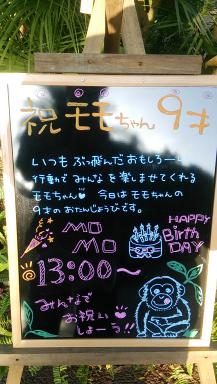 祝 モモちゃん 9才
いつも ぶっ飛んだおもしろーい
行動で みんなを 楽しませてくれる
モモちゃん 今日は モモちゃんの
9才のおたんじょうびです。
MO
MO
HAPPY
Birth
DAY
13:00〜
みんなで
お祝い
しよーう!!